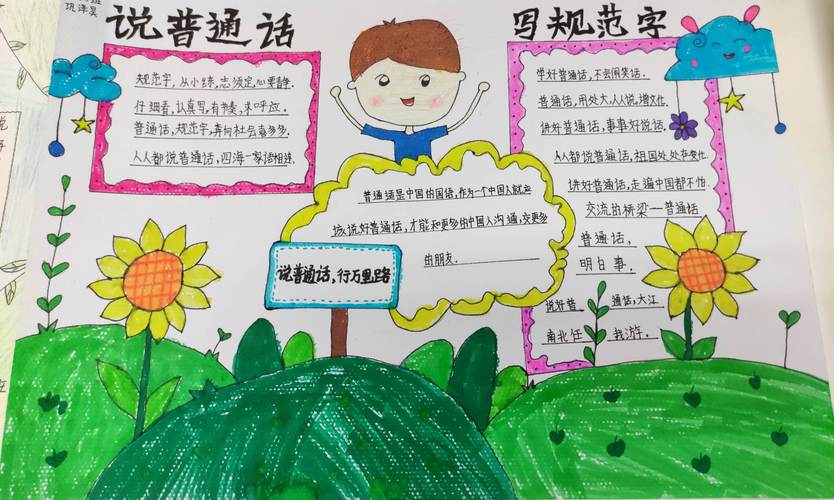 说普通话
写规范字
规范字,从小练,志须定,心要静.
仔细看,认真写,有书奏,来呼应.
普通话,规范字,奔向社会喜多多.
人人都说普通话,四海一家语相连.
普通话是中国的国语,作为一个中国人就应
该说好普通话,才能和更多的中国人沟通,交更多
的朋友.
说普通话,行万里路
学好普通话,不会闹笑话.
普通话,用处大,人人说,增文化.
讲好普通话,事事好说话.
人人都说普通话,祖国处处在变化
讲好普通话,走遍中国都不怕.
交流的桥梁一普通话
普通话,
明白事.
说好普通话,大江
南北任我游.